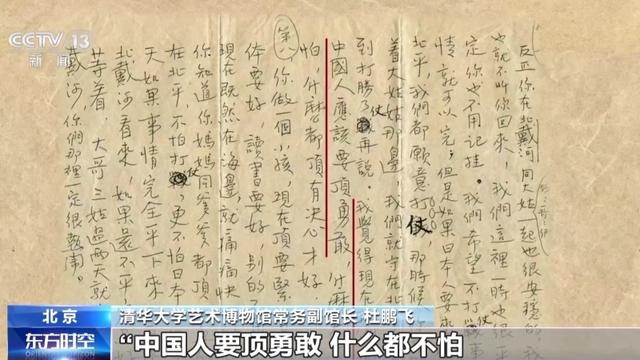 CCTV 13
新闻
反正你在北戴河同大姑一起也很安穩的
也就不叫你回來。我們這裡一時也很
定你也不用記挂。我們希望不打
情就可以完;但是如果日本人要來
北平,我們都願意打仗,那時候
着大姑姑那邊,我們就守在北
到打勝了仗再說。我覺得現在
中國人應該要頂勇敢,什麼
怕,什麼都頂有決心才好
第八,你做一個小孩,現在頂要緊
體要好,讀書要好,別的
現在既然在海邊就痛痛快
你知道你媽媽同爹爹都頂
在北平,不怕打仗,更不怕日本
天如果事情完全平下來
北戴河看來,如果還不平
等着,大哥三姑過兩天就
戴河,你們那裡一定很熱鬧。
北京 清华大学艺术博物馆常务副馆长 杜鹏飞
东方时空 “中国人要顶勇敢 什么都不怕